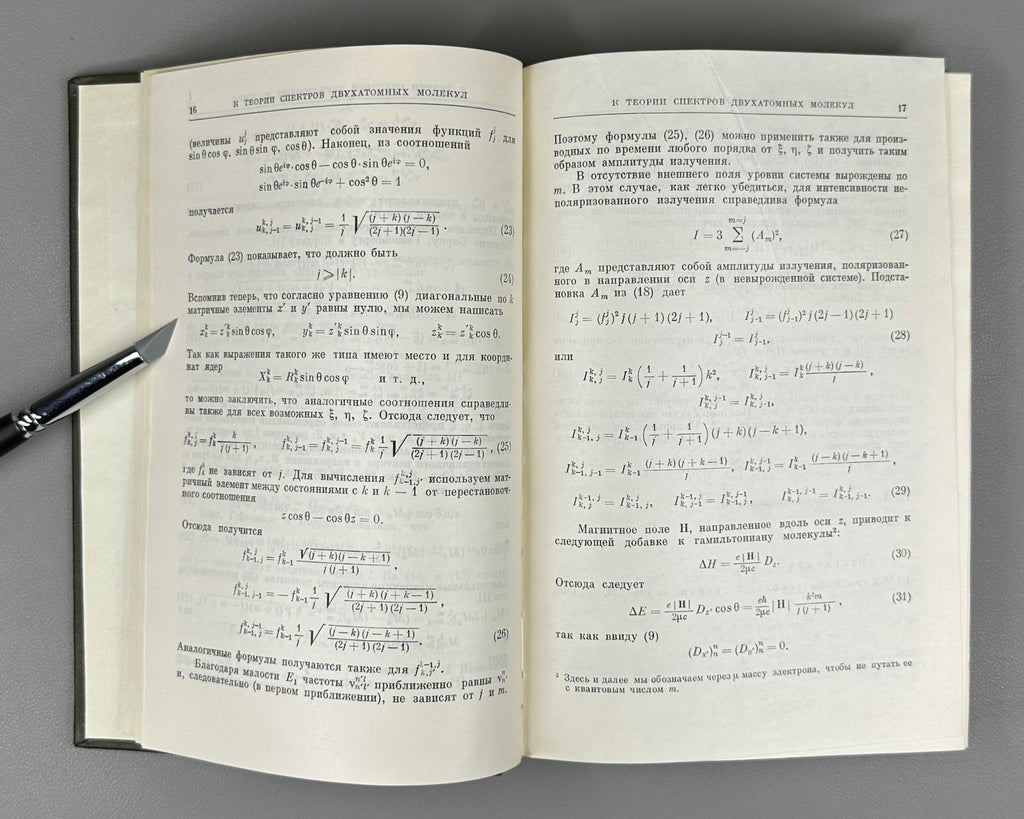 16 К ТЕОРИИ СПЕКТРОВ ДВУХАТОМНЫХ МОЛЕКУЛ
(величины u_j^j представляют собой значения функций f_j^j для
sin θ cos φ, sin θ sin φ, cos θ). Наконец, из соотношений
sin θe^{iφ}·cos θ — cos θ·sin θe^{iφ} = 0,
sin θe^{iφ}·sin θe^{−iφ} + cos² θ = 1
получается
u_{k, j−1}^{k, j} = u_{k, j}^{k, j−1} = \frac{1}{j} \sqrt{\frac{(j + k)(j — k)}{(2j + 1)(2j — 1)}}. (23)
Формула (23) показывает, что должно быть
j ⩾ |k|. (24)
Вспомнив теперь, что согласно уравнению (9) диагональные по k
матричные элементы x′ и y′ равны нулю, мы можем написать
x_k^k = z′_k^k sin θ cos φ, y_k^k = z′_k^k sin θ sin φ, z_k^k = z′_k^k cos θ.
Так как выражения такого же типа имеют место и для коорди-
нат ядер
X_k^k = R_k^k sin θ cos φ и т. д.,
то можно заключить, что аналогичные соотношения справедли-
вы также для всех возможных ξ, η, ζ. Отсюда следует, что
f_{k, j}^{k, j} = f_k^k \frac{k}{j(j + 1)}, f_{k, j−1}^{k, j} = f_{k, j}^{k, j−1} = f_k^k \frac{1}{j} \sqrt{\frac{(j + k)(j — k)}{(2j + 1)(2j — 1)}}, (25)
где f_k^k не зависят от j. Для вычисления f_{k−1, j′}^{k, j} используем мат-
ричный элемент между состояниями с k и k — 1 от перестановоч-
ного соотношения
z cos θ — cos θz = 0.
Отсюда получится
f_{k−1, j}^{k, j} = f_{k−1}^k \frac{\sqrt{(j + k)(j — k + 1)}}{j(j + 1)},
f_{k−1, j−1}^{k, j} = — f_{k−1}^k \frac{1}{j} \sqrt{\frac{(j + k)(j + k — 1)}{(2j + 1)(2j — 1)}},
f_{k−1, j}^{k, j−1} = f_{k−1}^k \frac{1}{j} \sqrt{\frac{(j — k)(j — k + 1)}{(2j + 1)(2j — 1)}}. (26)
Аналогичные формулы получаются также для f_{k, j′}^{k−1, j}.
Благодаря малости E₁ частоты приближенно равны
и, следовательно (в первом приближении), не зависят от j и m.
К ТЕОРИИ СПЕКТРОВ ДВУХАТОМНЫХ МОЛЕКУЛ 17
Поэтому формулы (25), (26) можно применить также для произ-
водных по времени любого порядка от ξ, η, ζ и получить таким
образом амплитуды излучения.
В отсутствие внешнего поля уровни системы вырождены по
m. В этом случае, как легко убедиться, для интенсивности не-
поляризованного излучения справедлива формула
I = 3 \sum_{m=−j}^{m=j} (A_m)², (27)
где A_m представляют собой амплитуды излучения, поляризован-
ного в направлении оси z (в невырожденной системе). Подста-
новка A_m из (18) дает
I_j^j = (f_j^j)² j (j + 1) (2j + 1), I_{j−1}^j = (f_{j−1}^j)² j (2j — 1) (2j + 1)
I_j^{j−1} = I_{j−1}^j, (28)
или
I_{k, j}^{k, j} = I_k^k (\frac{1}{j} + \frac{1}{j + 1}) k², I_{k, j−1}^{k, j} = I_k^k \frac{(j + k)(j — k)}{j},
I_{k, j}^{k, j−1} = I_{k, j−1}^{k, j},
I_{k−1, j}^{k, j} = I_{k−1}^k (\frac{1}{j} + \frac{1}{j + 1}) (j + k)(j — k + 1),
I_{k−1, j−1}^{k, j} = I_{k−1}^k \frac{(j + k)(j + k — 1)}{j}, I_{k−1, j}^{k, j−1} = I_{k−1}^k \frac{(j — k)(j — k + 1)}{j},
I_{k, j}^{k−1, j} = I_{k−1, j}^{k, j}, I_{k, j}^{k−1, j−1} = I_{k−1, j−1}^{k, j}, I_{k, j−1}^{k−1, j} = I_{k−1, j}^{k, j−1}. (29)
Магнитное поле H, направленное вдоль оси z, приводит к
следующей добавке к гамильтониану молекулы²:
ΔH = \frac{e|H|}{2μc} D_z. (30)
Отсюда следует
ΔE = \frac{e|H|}{2μc} D_{z′} cos θ = \frac{eħ}{2μc} |H| \frac{k²m}{j(j + 1)}, (31)
так как ввиду (9)
(D_{x′})_n^n = (D_{y′})_n^n = 0.
² Здесь и далее мы обозначаем через μ массу электрона, чтобы не путать ее
с квантовым числом m.